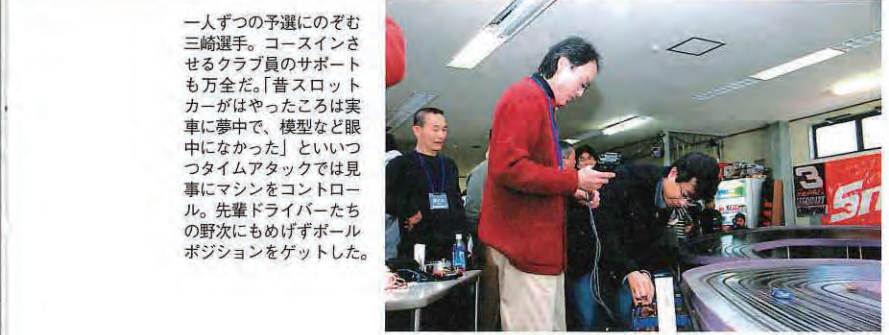 一人ずつの予選にのぞむ
三崎選手。コースインさ
せるクラブ員のサポート
も万全だ。「昔スロット
カーがはやったころは実
車に夢中で、模型など眼
中になかった」といいつ
つタイムアタックでは見
事にマシンをコントロー
ル。先輩ドライバーたち
の野次にもめげずポール
ポジションをゲットした。
3